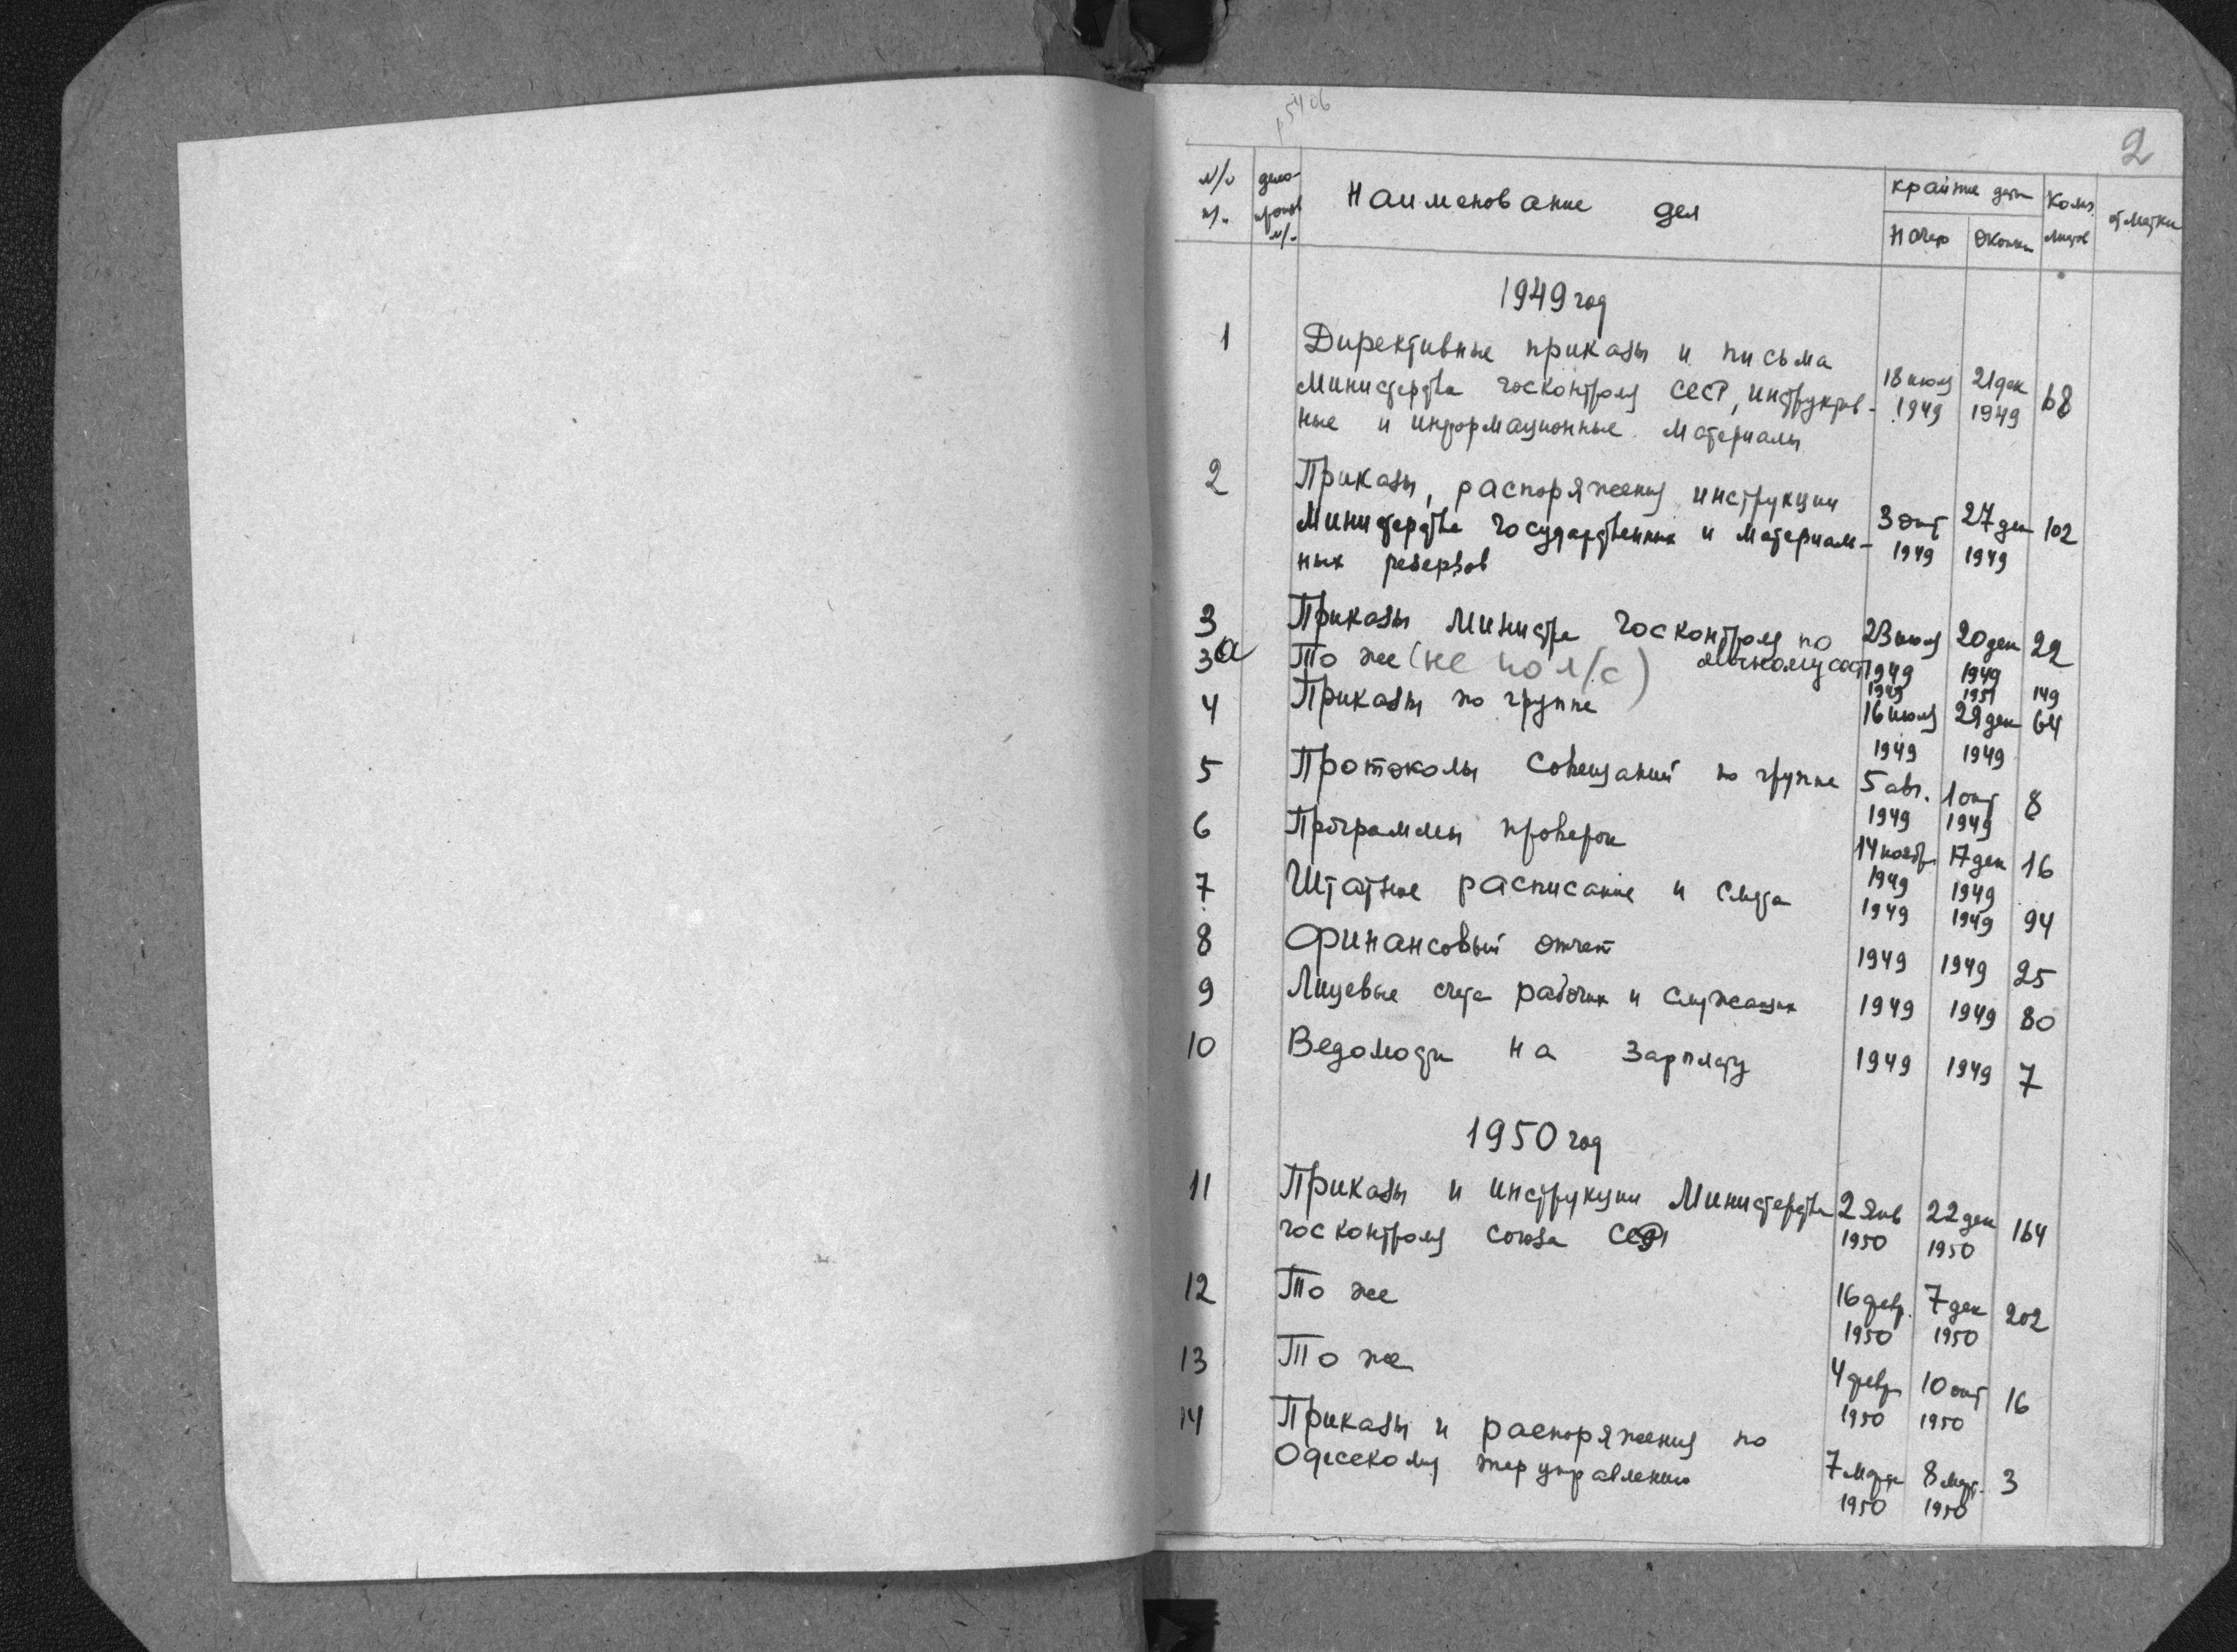 р5406
2
№/№ п/п дело- произв №/№ Наименование дел крайние даты Колич. листов отметки
Начато Окончен
1949 год
1 Директивные приказы и письма
Министерства госконтроля СССР, инструктив- 18 июля 1949 21 дек 1949 68
ные и информационные материалы
2 Приказы, распоряжения инструкции
Министерства государственных и материаль- 3 окт 1949 27 дек 1949 102
ных резервов
3 Приказы Министра Госконтроля по личному сост 23 июля 1949 20 дек 1949 22
3а То же (не по л/с) 1949 1951 149
4 Приказы по группе 16 июля 1949 29 дек 1949 64
5 Протоколы совещаний по группе 5 авг. 1949 1 окт 1949 8
6 Программы проверок 14 ноябр. 1949 17 дек 1949 16
7 Штатное расписание и смета 1949 1949 94
8 Финансовый отчет 1949 1949 25
9 Лицевые счета рабочих и служащих 1949 1949 80
10 Ведомости на зарплату 1949 1949 7
1950 год
11 Приказы и инструкции Министерства 2 янв 1950 22 дек 1950 164
госконтроля союза ССР
12 То же 16 февр. 1950 7 дек 1950 202
13 То же 4 февр 1950 10 окт 1950 16
14 Приказы и распоряжения по
Одесскому теруправлению 7 марта 1950 8 март. 1950 3